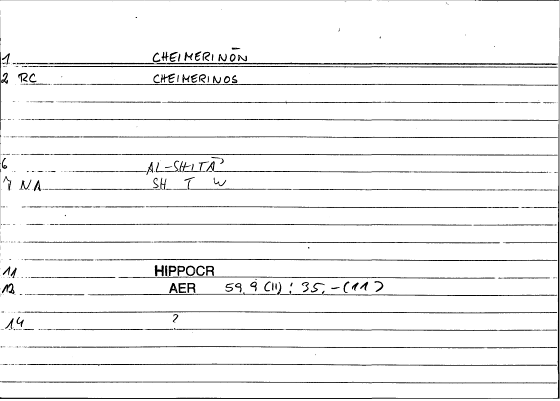 1 CHEIMERINŌN
2 RC CHEIMERINOS
6 AL-SHITĀʾ
7 NA SH T W
11 HIPPOCR
12 AER 59,9 (11) : 35,-(11)
14 ?